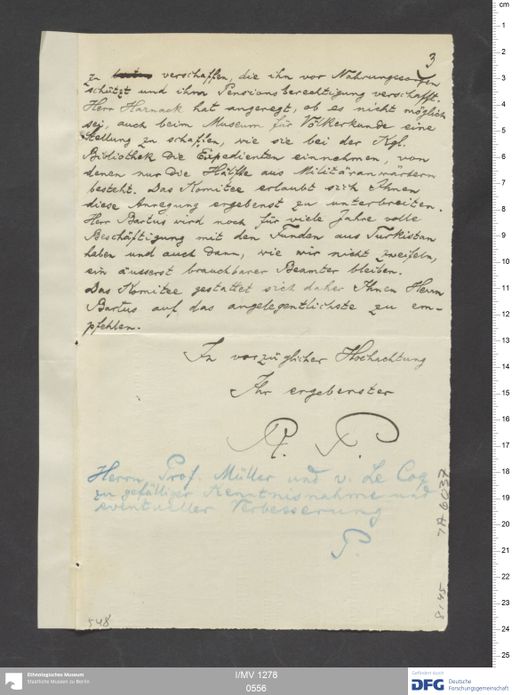 3
zu verschaffen, die ihn vor Nahrungssorgen
schützt und ihm Pensionsberechtigung verschafft.
Herr Harnack hat angeregt, ob es nicht möglich
sei, auch beim Museum für Völkerkunde eine
Stellung zu schaffen, wie sie bei der Kgl.
Bibliothek die Expedienten einnehmen, von
denen nur die Hälfte aus Militäranwärtern
besteht. Das Komitee erlaubt sich Ihnen
diese Anregung ergebenst zu unterbreiten.
Herr Bartus wird noch für viele Jahre volle
Beschäftigung mit den Funden aus Turkistan
haben und auch dann, wie wir nicht zweifeln,
ein äusserst brauchbarer Beamter bleiben.
Das Komitee gestattet sich daher Ihnen Herrn
Bartus auf das angelegentlichste zu em-
pfehlen.
In vorzüglicher Hochachtung
Ihr ergebenster
R. P.
Herrn Prof. Müller und v. Le Coq
zur gefälligen Kenntnisnahme und
eventueller Verbesserung
P.
548
Ethnologisches Museum
Staatliche Museen zu Berlin
I/MV 1278
0556
Gefördert durch
DFG Deutsche
Forschungsgemeinschaft
cm
1
2
3
4
5
6
7
8
9
10
11
12
13
14
15
16
17
18
19
20
21
22
23
24
25